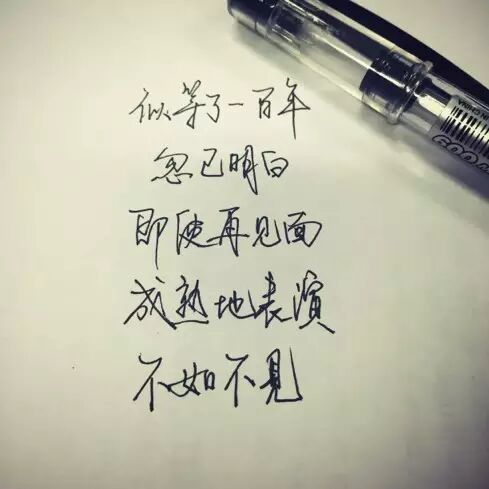 似等了一百年
忽已明白
即使再见面
成熟地表演
不如不見